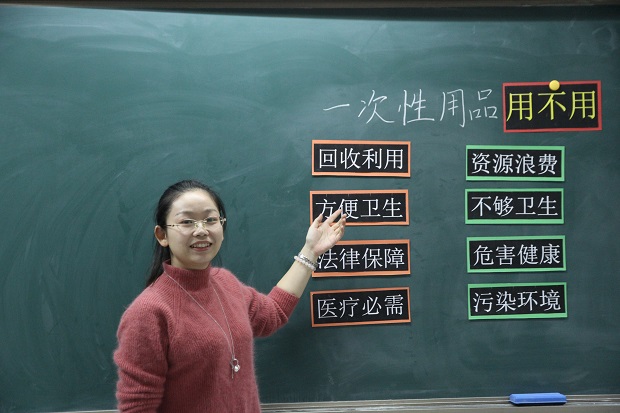 一次性用品 用不用
回收利用 资源浪费
方便卫生 不够卫生
法律保障 危害健康
医疗必需 污染环境